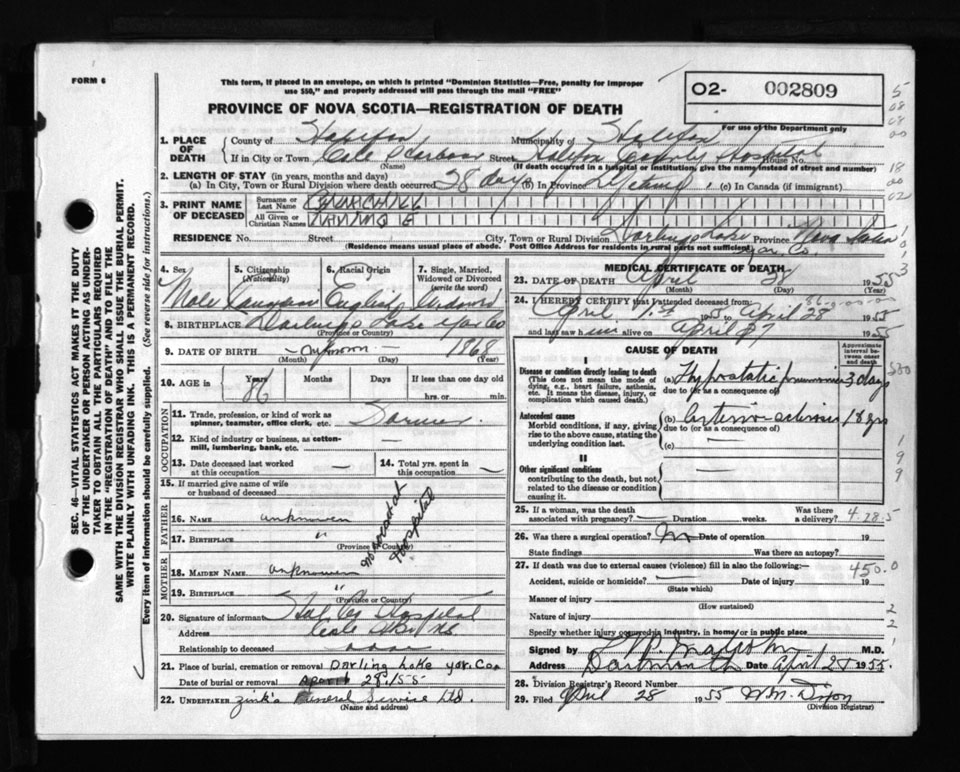 FORM 6
This form, if placed in an envelope, on which is printed "Dominion Statistics—Free, penalty for improper
use $50," and properly addressed will pass through the mail "FREE"
PROVINCE OF NOVA SCOTIA—REGISTRATION OF DEATH
O2- 002809
For use of the Department only
1. PLACE OF DEATH
County of Halifax Municipality of Halifax
If in City or Town Cole Harbour Street Halifax County Hospital House No.
(Name) (If death occurred in a hospital or institution, give the name instead of street and number)
2. LENGTH OF STAY (in years, months and days)
(a) In City, Town or Rural Division where death occurred 28 days (b) In Province Lifetime (c) In Canada (if immigrant)
3. PRINT NAME OF DECEASED
Surname or Last Name CHURCHILL
All Given or Christian Names
RESIDENCE No. Street City, Town or Rural Division Darlings Lake Province Nova Scotia
(Residence means usual place of abode. Post Office Address for residents in rural parts not sufficient) Yar. Co.
4. Sex Male
5. Citizenship (Nationality) Canadian
6. Racial Origin English
7. Single, Married, Widowed or Divorced (write the word) Widowed
8. BIRTHPLACE Darlings Lake Yar Co
(Province or Country)
9. DATE OF BIRTH — unknown — 1868
(Month) (Day) (Year)
10. AGE in Years 86 Months Days If less than one day old
hrs. or min.
OCCUPATION
11. Trade, profession, or kind of work as
spinner, teamster, office clerk, etc. Farmer
12. Kind of industry or business, as cotton-
mill, lumbering, bank, etc. —
13. Date deceased last worked
at this occupation —
14. Total yrs. spent in
this occupation —
15. If married give name of wife
or husband of deceased
FATHER
16. NAME unknown
17. BIRTHPLACE "
(Province or Country)
No record at Hospital
MOTHER
18. MAIDEN NAME unknown
19. BIRTHPLACE "
(Province or Country)
20. Signature of informant Hal Co Hospital
Address Cole
Relationship to deceased none
21. Place of burial, cremation or removal Darling Lake yar. Co.
Date of burial or removal April 28. 1955
22. UNDERTAKER Zink's Funeral Service Ltd.
(Name and address)
MEDICAL CERTIFICATE OF DEATH
23. DATE OF DEATH April 28 1955
(Month) (Day) (Year)
24. I HEREBY CERTIFY that I attended deceased from
April 1st to April 28 1955
and last saw him alive on April 27 1955
CAUSE OF DEATH
Approximate interval between onset and death
I
Disease or condition directly leading to death
(This does not mean the mode of dying, e.g., heart failure, asthenia, etc. It means the disease, injury, or complication which caused death.)
(a) Hypostatic pneumonia 3 days
due to (or as a consequence of)
Antecedent causes
Morbid conditions, if any, giving rise to the above cause, stating the underlying condition last.
(b) Arterio-sclerosis 18 yrs
due to (or as a consequence of)
(c) —
II
Other significant conditions
contributing to the death, but not related to the disease or condition causing it.
25. If a woman, was the death
associated with pregnancy? — Duration weeks. Was there a delivery?
4.28.5
26. Was there a surgical operation? No Date of operation 19
State findings Was there an autopsy?
27. If death was due to external causes (violence) fill in also the following:—
450.0
Accident, suicide or homicide? — Date of injury 19
(State which)
Manner of injury
(How sustained)
Nature of injury
Specify whether injury occurred in industry, in home, or in public place
Signed by M.D.
Address Dartmouth Date April 28 1955.
28. Division Registrar's Record Number
29. Filed April 28 1955 Wm. Dixon
(Division Registrar)
SEC. 46—VITAL STATISTICS ACT MAKES IT THE DUTY
OF THE UNDERTAKER OR PERSON ACTING AS UNDER-
TAKER TO OBTAIN ALL THE PARTICULARS REQUIRED
IN THE "REGISTRATION OF DEATH" AND TO FILE THE
SAME WITH THE DIVISION REGISTRAR WHO SHALL ISSUE THE BURIAL PERMIT.
WRITE PLAINLY WITH UNFADING INK. THIS IS A PERMANENT RECORD.
Every item of information should be carefully supplied. (See reverse side for instructions.)